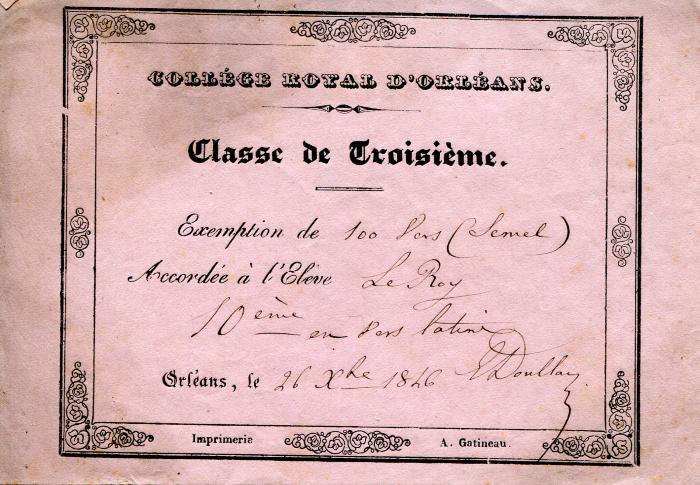 COLLÉGE ROYAL D'ORLÉANS.
Classe de Troisième.
Exemption de 100 Vers (Semel)
Accordée à l'Elève Le Roy
10 ème en vers latins
Orléans, le 26 Xbre 1846 Doullay
Imprimerie A. Gatineau.